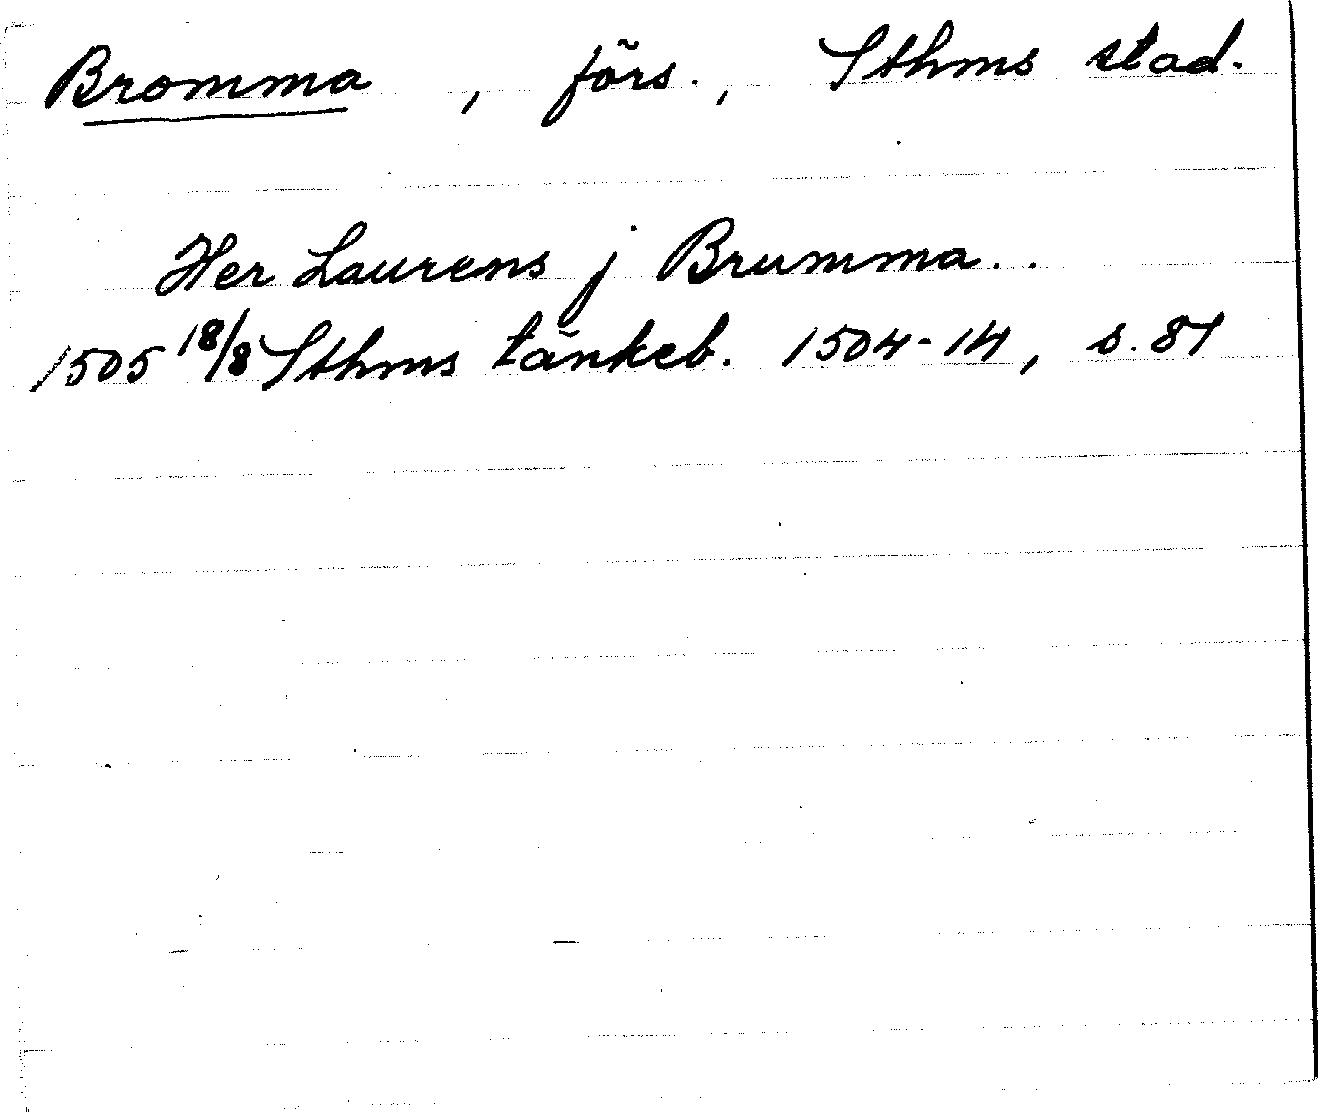 Bromma, förs., Sthms stad.
Her Laurens j Brumma..
1505 18/8 Sthms tänkeb. 1504-14, s. 87